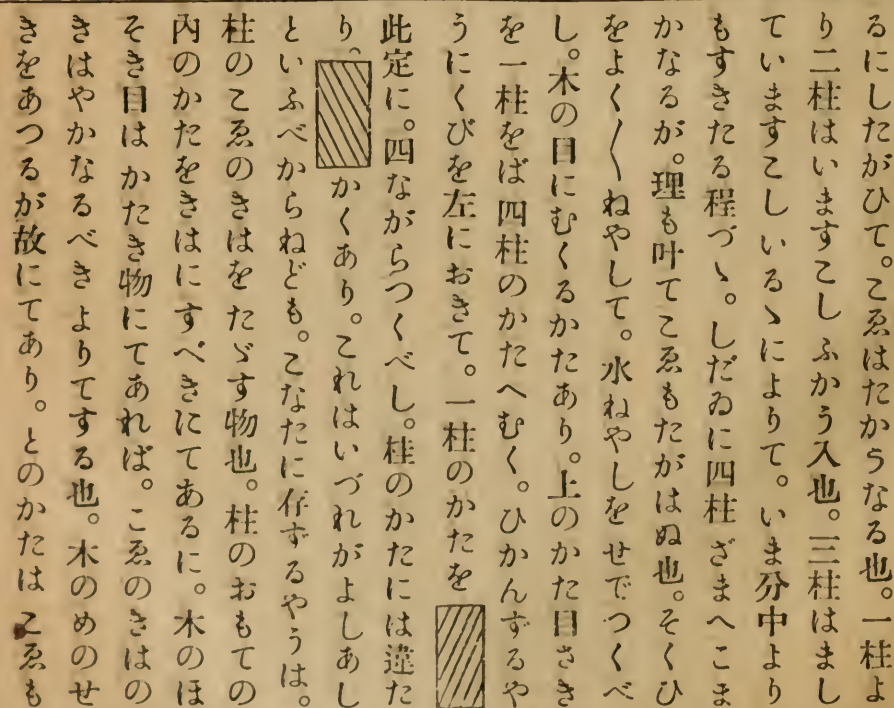 るにしたがひて。こゑはたかうなる也。一柱よ
り二柱はいますこしふかう入也。三柱はまし
ていますこしいるゝによりて。いま分中より
もすきたる程づゝ。しだゐに四柱ざまへこま
かなるが。理も叶てこゑもたがはぬ也。そくひ
をよく〳〵ねやして。水ねやしをせでつくべ
し。木の目にむくるかたあり。上のかた目さき
を一柱をば四柱のかたへむく。ひかんずるや
うにくびを左におきて。一柱のかたを
此定に。四ながらつくべし。柱のかたには違た
り。かくあり。これはいづれがよしあし
といふべからねども。こなたに存ずるやうは。
柱のこゑのきはをたゞす物也。柱のおもての
内のかたをきはにすべきにてあるに。木のほ
そき目はかたき物にてあれば。こゑのきはの
きはやかなるべきよりてする也。木のめのせ
きをあつるが故にてあり。とのかたはこゑも